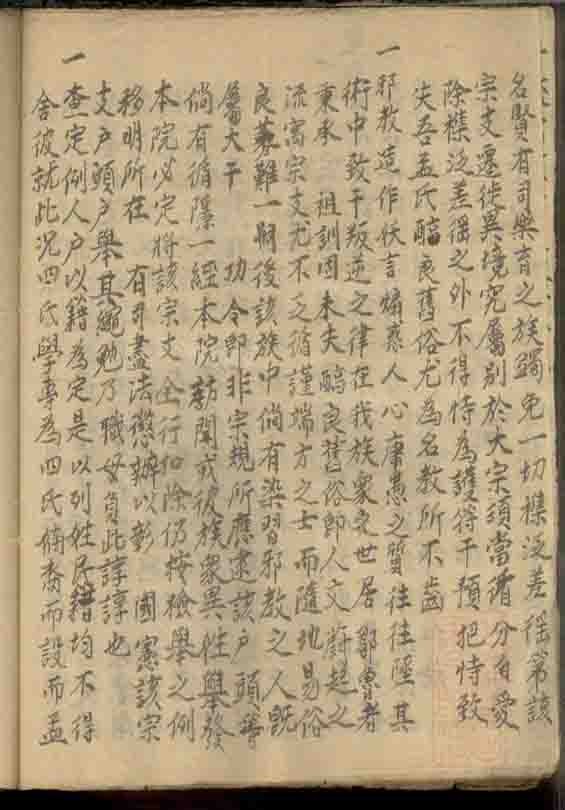 名賢有司樂育之族蠲免一切襍泛差徭第該
宗支遷徙異境究屬別於大宗須當循分自愛
除襍泛差徭之外不得恃為護符干預把恃致
失吾孟氏醕良舊俗尤為名教所不齒
一邪教造作妖言煽惑人心庸愚之質往往陞其
術中致干叛逆之律在我族衆之世居鄒魯者
秉承 祖訓固未失醕良舊俗即人文蔚起之
流寓宗支尤不乏循謹端方之士而隨地易俗
良莠難一嗣後該族中倘有染習邪教之人既
屬大干 功令即非宗規所應隶該户頭等
倘有循隱一經本院訪聞或彼族衆異姓舉發
本院必定將該宗支全行扣除仍按檢舉之例
移明所在 有司盡法懲辦以彰 國憲該宗
支户頭户舉其縄勉乃職毋負此諄諄也
一查定例人户以籍為定是以列姓民籍均不得
舍彼就此况四氏學專為四氏裔而設而孟